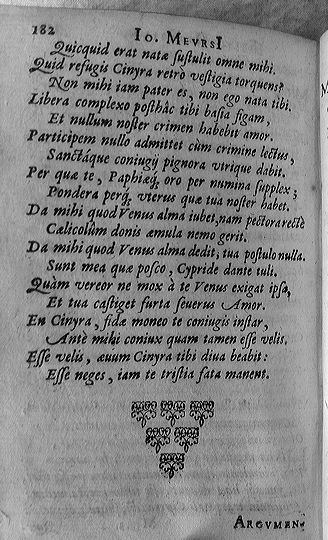 182 Io. MEVRSI
Quicquid erat natæ sustulit omne mihi.
Quid refugis Cinyra retrò vestigia torquens?
Non mihi iam pater es, non ego nata tibi.
Libera complexo posthàc tibi basia figam,
Et nullum noster crimen habebit amor.
Participem nullo admittet cùm crimine lectus,
Sanctáque coniugij pignora vtrique dabit.
Per quæ te, Paphiæq́; oro per numina supplex;
Pondera perq́; vterus quæ tua noster habet.
Da mihi quod Venus alma iubet, nam pectora rectè
Cælicolûm donis æmula nemo gerit.
Da mihi quod Venus alma dedit, tua postulo nulla.
Sunt mea quæ posco, Cypride dante tuli.
Quàm vereor ne mox à te Venus exigat ipsa,
Et tua castiget furta seuerus Amor.
En Cinyra, fidæ moneo te coniugis instar,
Antè mihi coniux quam tamen esse velis.
Esse velis, æuum Cinyra tibi diua beabit:
Esse neges, iam te tristia fata manent.
ARGVMEN-